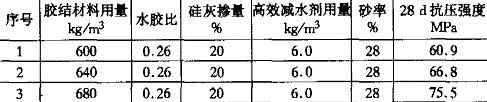 序号 胶结材料用量 kg/m³ 水胶比 硅灰掺量 % 高效减水剂用量 kg/m³ 砂率 % 28 d抗压强度 MPa
1 600 0.26 20 6.0 28 60.9
2 640 0.26 20 6.0 28 66.8
3 680 0.26 20 6.0 28 75.5